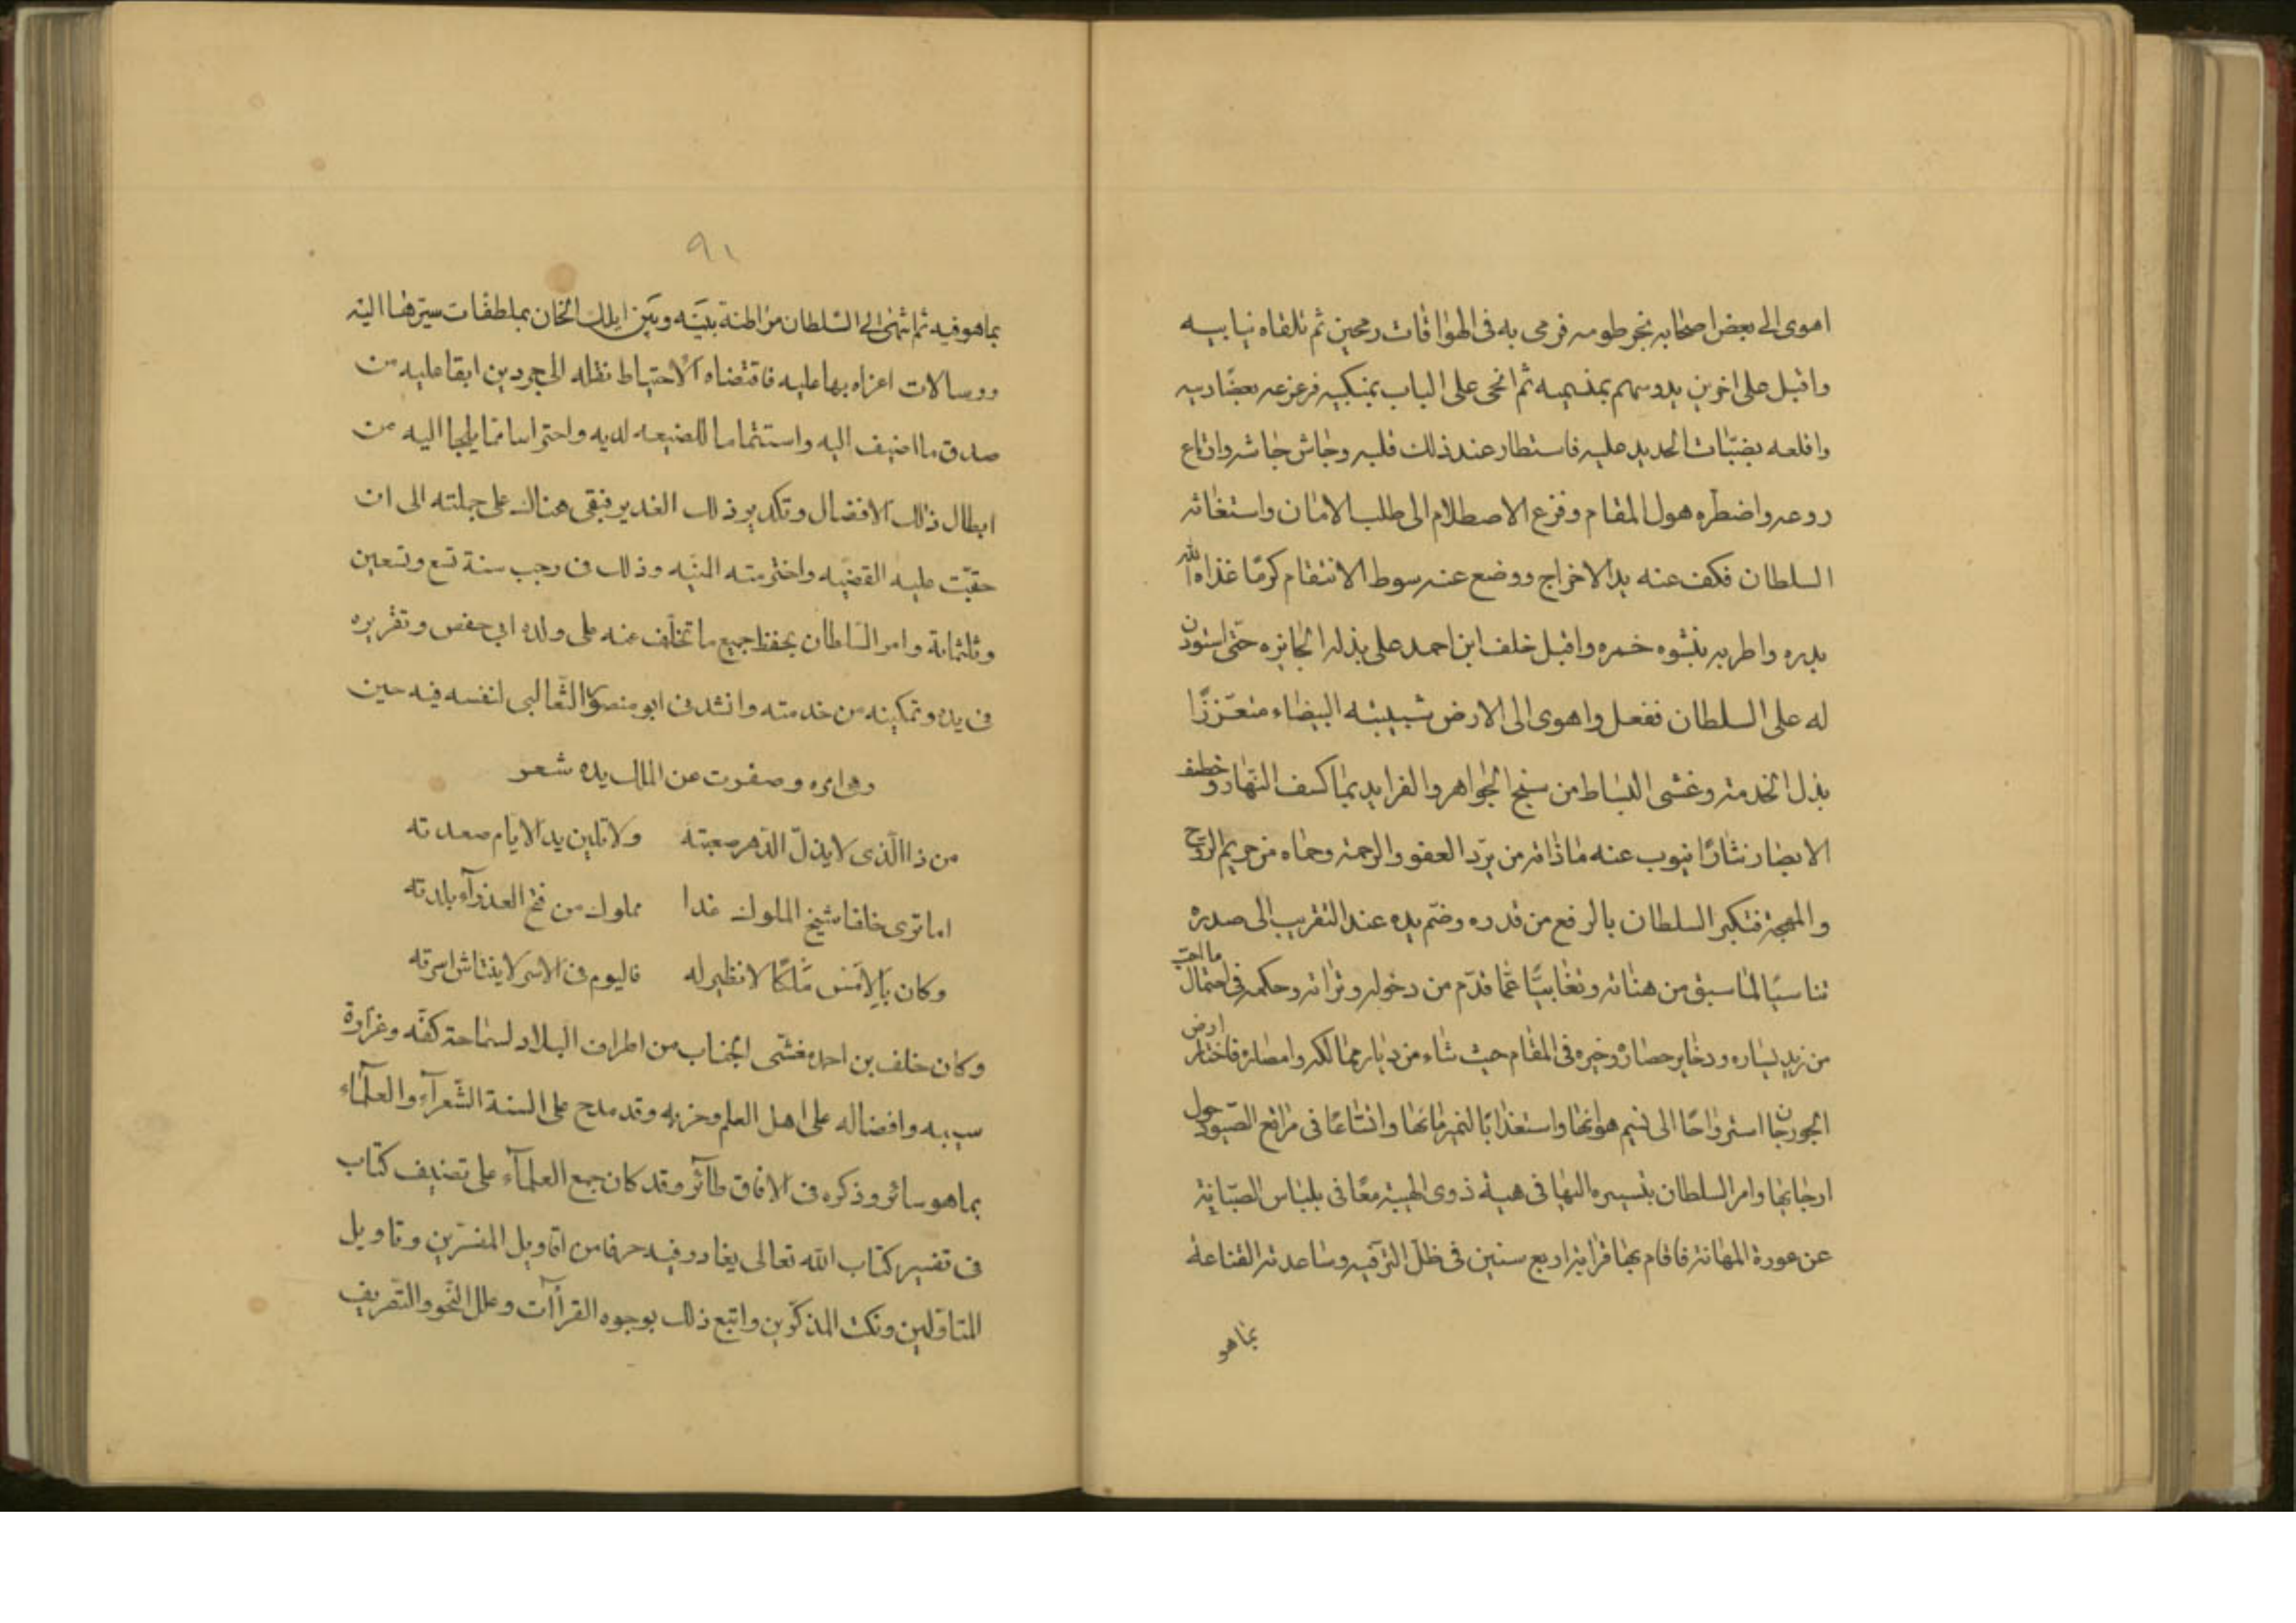 اهوى الى بعض اصحابه بخرطومه فرمى به فى الهوا قات رمحين ثم تلقاه بنابيه
واقبل على اخرين يدوسهم بمنسميه ثم انحى على الباب بمنكبيه فزعزعه بعضادتيه
واقلعه بضبّات الحديد عليه فاستطار عند ذلك قلبه وجاش جاشه وارتاع
روعه واضطره هول المقام وفزع الاصطلام الى طلب الامان واستغاثة
السلطان فكف عنه يد الاخراج ووضع عنه سوط الانتقام كرمًا غذاه الله
بدره واطربه بنشوه خمره واقبل خلف ابن احمد على بذله الجايزه حتى استوذن
له على السلطان ففعل واهوى الى الارض بشيبته البيضاء متعززًا
بذل الخدمة وغشى البساط من سبح الجواهر والفرايد بما كسف النهار وخطف
الابصار نثارًا ينوب عنه ماذاقه من برد العفو والرحمة وحماه من حريم الروح
والمهجة فتكبر السلطان بالرفع من قدره وضم يده عند التقريب الى صدره
تناسيًا لما سبق من هناته وتغابيًا عما قدّم من دخوله وتراته وحكمه فى احتمال ما احب
من زيد يساره ودخاير حصاره وخيره فى المقام حيث شاء من ديار ممالكه وامصاره فاختار ارض
الجوزجان استرواحًا الى نسيم هوائها واستعذابًا لنمير مائها واتساعًا فى مراتع الصيود حول
ارجائها وامر السلطان بتسييره اليها فى هيئة ذوى الهيبة معافى بلباس الصيانة
عن عورة المهانة فاقام بها قرابة اربع سنين فى ظل الترفيه وساعدته القناعة
بما هو
٩١
بما هو فيه ثم انهى الى السلطان مراطنة بينه وبين ايلك الخان بملطفات سيرها اليه
ورسالات اعزاه بها عليه فاقتضاه الاحتياط نقله الى جردين ابقا عليه من
صدق ما اضيف اليه واستتماما للصنيعه لديه واحتراسا مما يلجا اليه من
ابطال ذلك الافضال وتكدير ذلك الغدير فبقى هناك على جملته الى ان
حقت عليه القضيه واخترمته المنيه وذلك فى رجب سنة تسع وتسعين
وثلثمائة وامر السلطان بحفظ جميع ما تخلف عنه على ولده ابى حفص وتقريره
فى يده وتمكينه من خدمته وانشدنى ابو منصور الثعالبى لنفسه فيه حين
وهى امره وصفرت عن المال يده شعر
من ذا الذى لا يذل الدهر صعبته ولا تلين يد الايام صعدته
اما ترى خلفا شيخ الملوك غدا مملوك من فتح العذرآء بلدته
وكان بالامس ملكًا لا نظير له فاليوم فى الاسر لا ينتاش اسرته
وكان خلف بن احمد مغشى الجناب من اطراف البلاد لسماحة كفه وغزارة
سيبه وافضاله على اهل العلم وحزبه وقد مدح على السنة الشعرآء والعلمآء
بما هو سائر وذكره فى الافاق طآئر وقد كان جمع العلمآء على تصنيف كتاب
فى تفسير كتاب الله تعالى يغادر فيه حرفا من اقاويل المفسرين وتاويل
المتاولين ونكت المذكرين واتبع ذلك بوجوه القرآآت وعلل النحو والتصريف